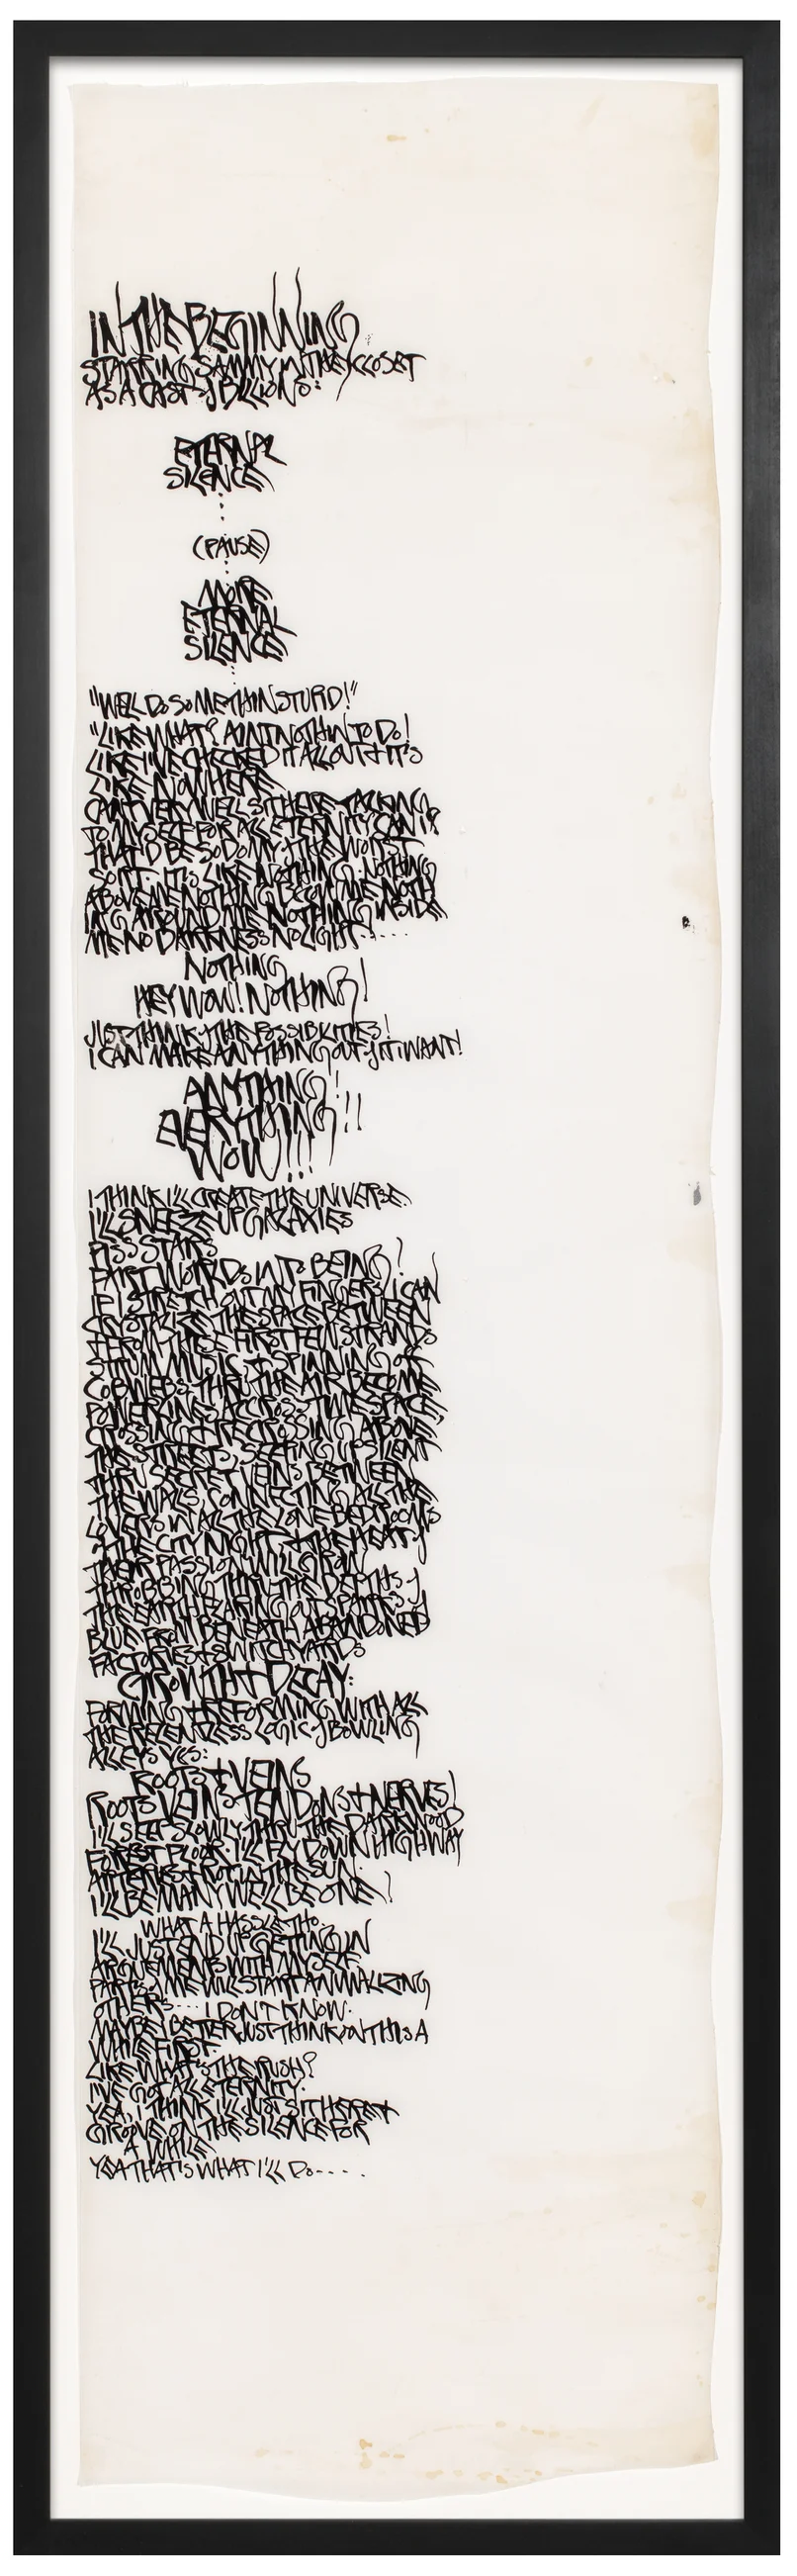 IN THE BEGINNING
STARRING SAMMY M THE CLOSET
AS A CAST OF BILLIONS:
ETERNAL
SILENCE
(PAUSE)
MORE
ETERNAL
SILENCE
"WELL DO SOMETHIN STUPID!"
"LIKE WHAT? AIN'T NOTHIN TO DO!
LIKE I'VE CHECKED IT ALL OUT + IT'S
LIKE NOWHERE
CAN'T VERY WELL SIT HERE TALKING
TO MYSELF FOR ALL ETERNITY CAN I?
THAT'D BE SODOMY + THE WORST
SORT. IT'S LIKE NOTHING. NOTHING
ABOVE ME NOTHING BELOW ME NOTH
ING AROUND ME NOTHING INSIDE
ME NO DARKNESS NO LIGHT.....
NOTHING
HEY WOW! NOTHING!
JUST THINK THE POSSIBILITIES!
I CAN MAKE ANYTHING OUT OF IT I WANT!
ANYTHING!
EVERYTHING!!
WOW!!!
I THINK I'LL CREATE THE UNIVERSE.
I'LL SNEEZE UP GALAXIES
PISS STARS
FART WORLDS INTO BEING!
IF I STRETCH OUT MY FINGERS I CAN
CRYSTALIZE THE SPACE BETWEEN
+ FROM THESE FIRST FEW STRANDS
STRUM MUSIC + SPINNING OFF
COBWEBS THRU THE AIR BECOME
POWERLINES ACCROSS TIME SPACE,
CROSSING + RECROSSING ABOVE
THE STREETS, SEEPING UP SILENT
THRU SECRET VEINS BETWEEN
THE WALLS CONNECTING ALL THE
LOVERS IN ALL THE LONE BEDROOMS
OF THE CITY NIGHT + THE HEAT OF
THEIR PASSION WILL GROW
THROBBING THRU THE DEPTHS OF
THE EARTH FLARING UP SPARKS OF
BLUE FROM BENEATH ABANDONED
FACTORIES + SWITCHYARDS
GROWTH + DECAY:
FORMING + REFORMING WITH ALL
THE RELENTLESS LOGIC OF BOWLING
ALLEYS YES:
ROOTS + VEINS
ROOTS VEINS TENDONS + NERVES!
I'LL SEEP SLOWLY THRU THE DARK WOOD
FOREST FLOOR. I'LL FLY DOWN HIGHWAY
ARTERIES + ROT IN THE SUN.
I'LL BE MANY WE'LL BE ONE!
WHAT A HASSLE THO.
I'LL JUST END UP GETTING IN
ARGUEMENTS WITH MYSELF
PARTS OF ME WILL START ANNALIZING
OTHERS.... I DON'T KNOW.
MAYBE I BETTER JUST THINK ON THIS A
WHILE FIRST.
LIKE WHAT'S THE RUSH?
I'VE GOT ALL ETERNITY.
YEA, I THINK I'LL JUST SIT HERE +
GROOVE ON THE SILENCE FOR
A WHILE
YEA THAT'S WHAT I'LL DO....